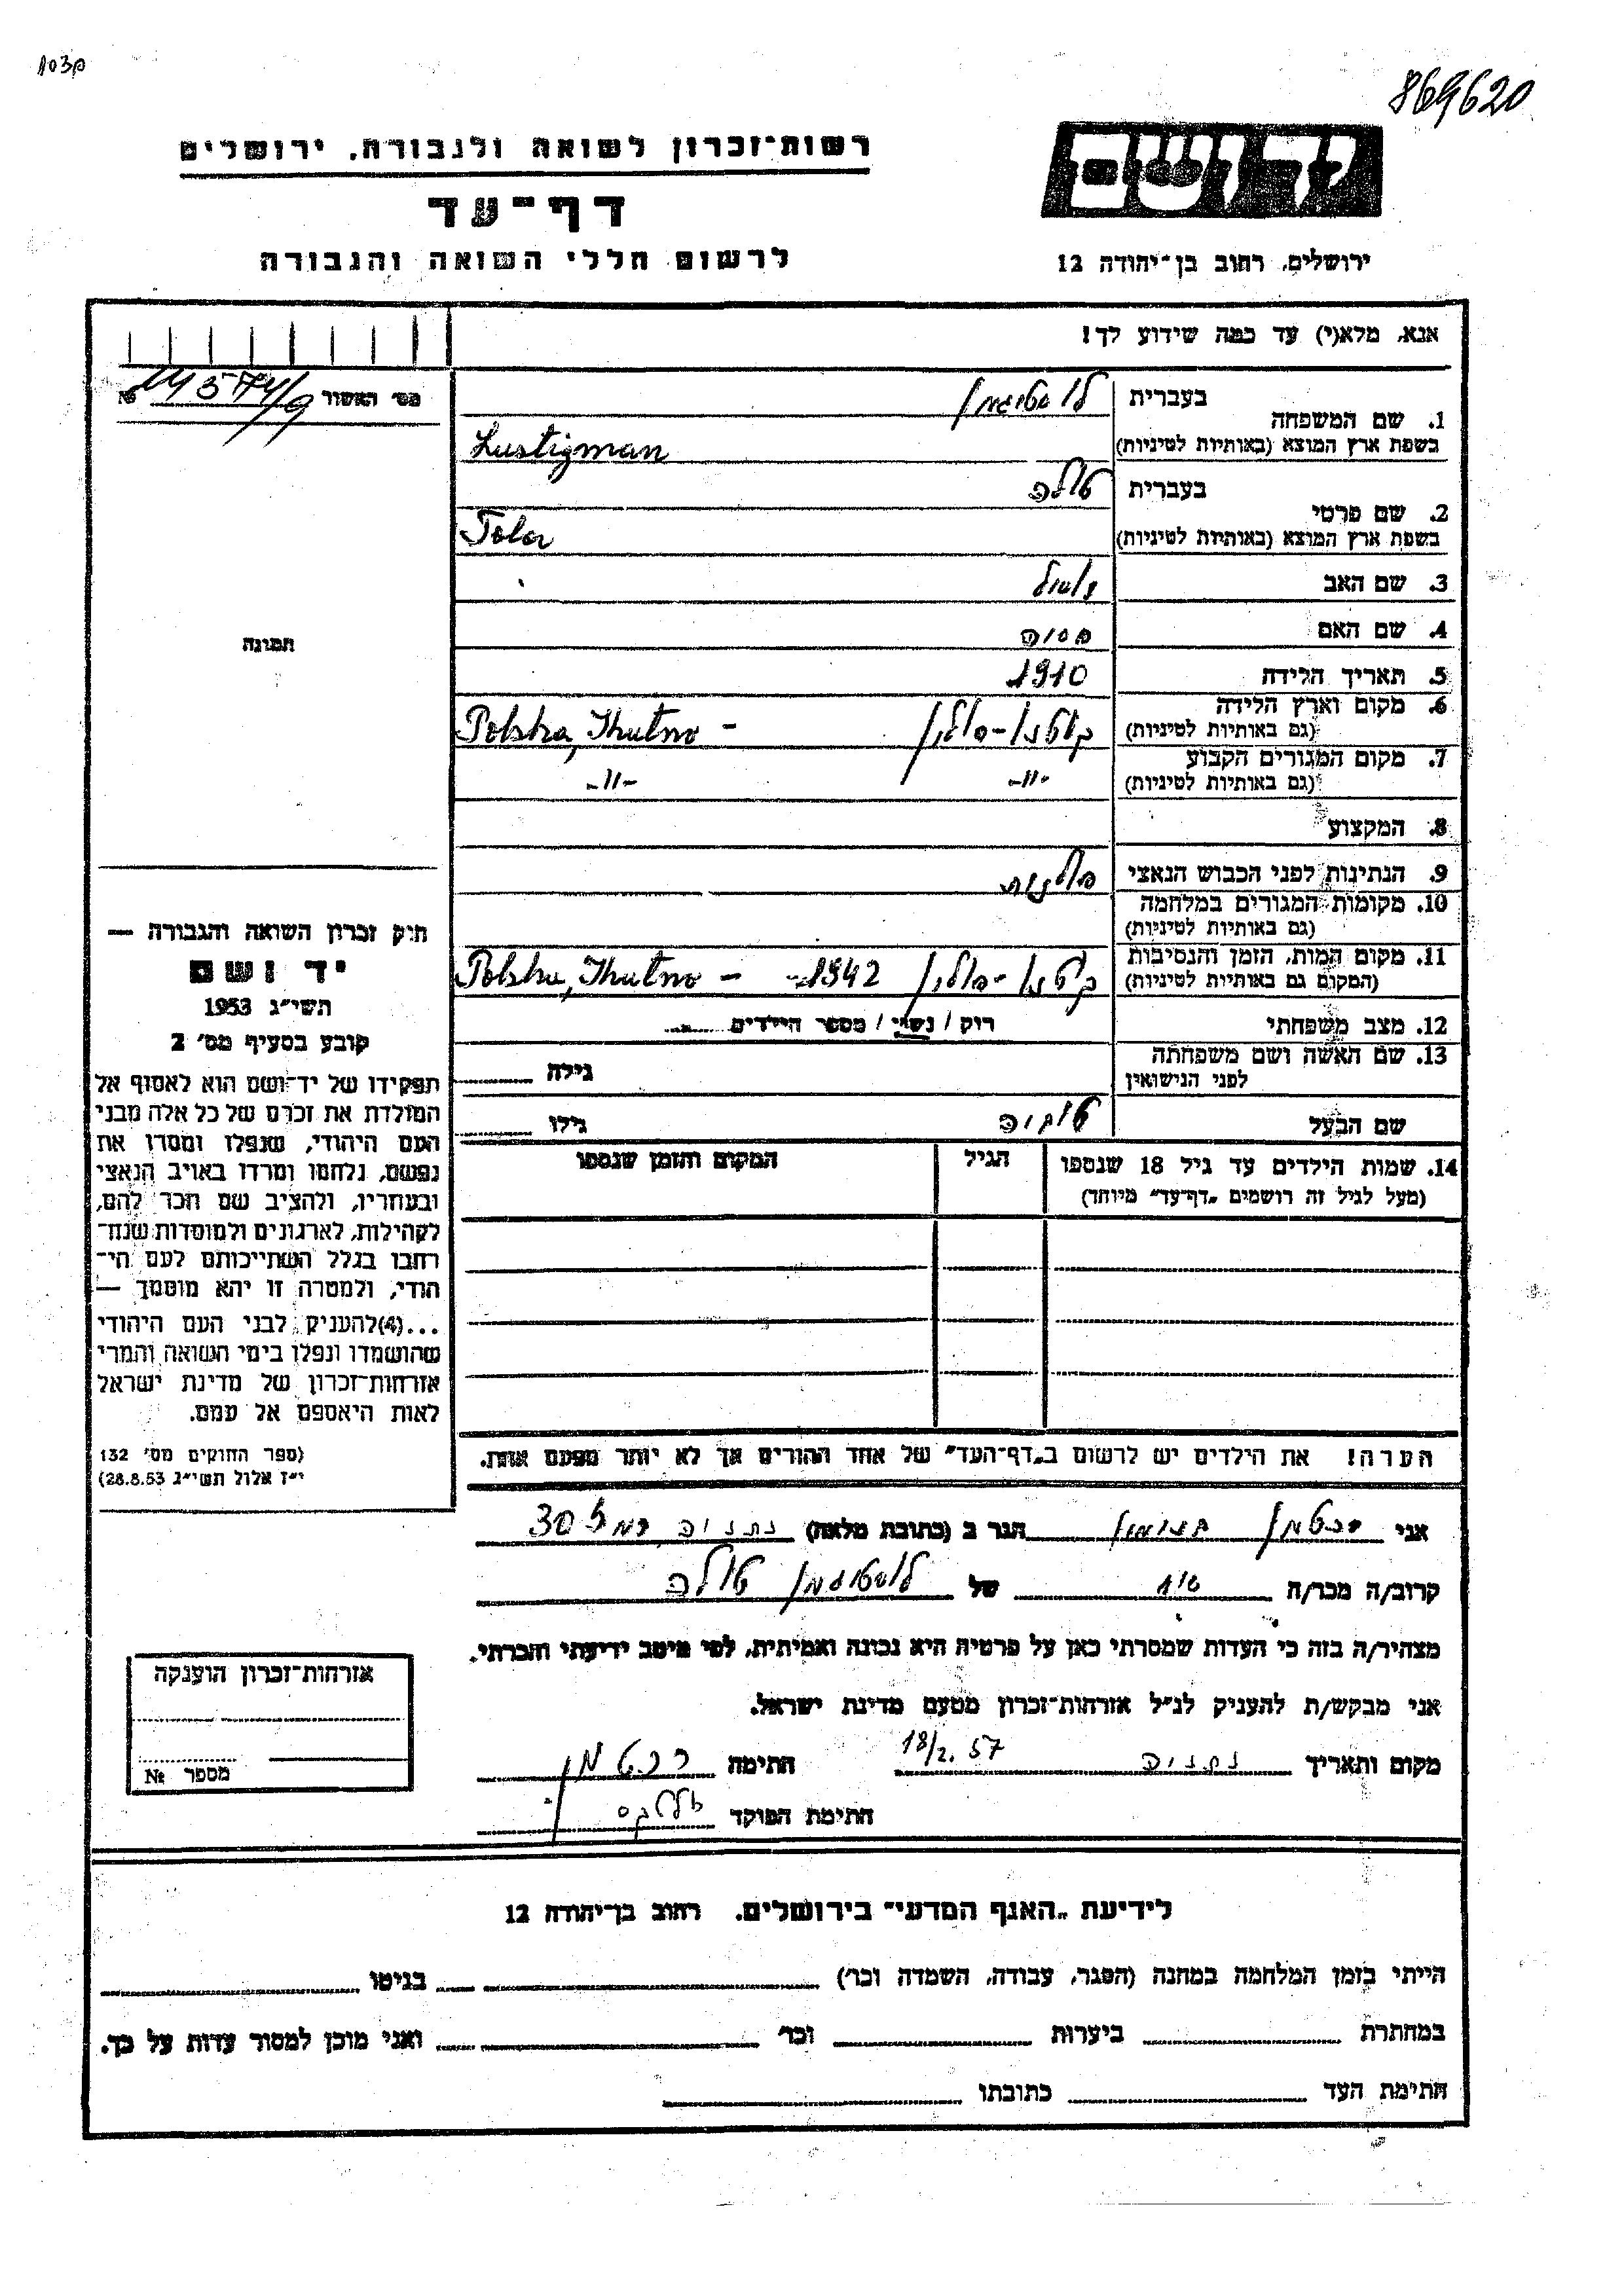 869620
רשות־זכרון לשואה ולגבורה, ירושלים
דף־עד
לרשום חללי השואה והגבורה
יד ושם
ירושלים, רחוב בן־יהודה 12
אנא, מלא(י) עד כמה שידוע לך!
מס׳ האשור № 14574/9
1. שם המשפחה
בעברית לוסטיגמן
בשפת ארץ המוצא (באותיות לטיניות) Lustigman
2. שם פרטי
בעברית טולה
בשפת ארץ המוצא (באותיות לטיניות) Tola
3. שם האב
4. שם האם
5. תאריך הלידה 1910
6. מקום וארץ הלידה קוטנו-פולין
(גם באותיות לטיניות) Polska, Khutno -
7. מקום המגורים הקבוע -״-
(גם באותיות לטיניות) -״-
8. המקצוע
9. הנתינות לפני הכבוש הנאצי פולנית
10. מקומות המגורים במלחמה
(גם באותיות לטיניות)
11. מקום המות, הזמן והנסיבות קוטנו-פולין 1942
(המקום גם באותיות לטיניות) Polska, Khutno -
12. מצב משפחתי רוק / נשוי / מספר הילדים
13. שם האשה ושם משפחתה
לפני הנישואין גילה
שם הבעל טוביה גילו
14. שמות הילדים עד גיל 18 שנספו
(מעל לגיל זה רושמים „דף־עד״ מיוחד)
הגיל
המקום והזמן שנספו
הערה! את הילדים יש לרשום ב„דף־העד״ של אחד ההורים אך לא יותר מפעם אחת.
תמונה
חוק זכרון השואה והגבורה —
יד ושם
תשי״ג 1953
קובע בסעיף מס׳ 2
תפקידו של יד־ושם הוא לאסוף אל
המולדת את זכרם של כל אלה מבני
העם היהודי, שנפלו ומסרו את
נפשם, נלחמו ומרדו באויב הנאצי
ובעוזריו, ולהציב שם וזכר להם,
לקהילות, לארגונים ולמוסדות שנח־
רבו בגלל השתייכותם לעם הי־
הודי, ולמטרה זו יהא מוסמך —
...(4)להעניק לבני העם היהודי
שהושמדו ונפלו בימי השואה והמרי
אזרחות־זכרון של מדינת ישראל
לאות היאספם אל עמם.
(ספר החוקים מס׳ 132
י״ז אלול תשי״ג 28.8.53)
אני רכטמן הגר ב (כתובת מלאה) נתניה 30
קרוב/ה מכר/ה של לוסטיגמן טולה
מצהיר/ה בזה כי העדות שמסרתי כאן על פרטיה היא נכונה ואמיתית, לפי מיטב ידיעתי והכרתי.
אני מבקש/ת להעניק לנ״ל אזרחות־זכרון מטעם מדינת ישראל.
מקום ותאריך נתניה 18/2.57 חתימה רכטמן
חתימת הפוקד
אזרחות־זכרון הוענקה
מספר №
לידיעת „האגף המדעי״ בירושלים, רחוב בן־יהודה 12
הייתי בזמן המלחמה במחנה (הסגר, עבודה, השמדה וכו׳) בגיטו
במחתרת ביערות וכו׳ ואני מוכן למסור עדות על כך.
חתימת העד כתובתו